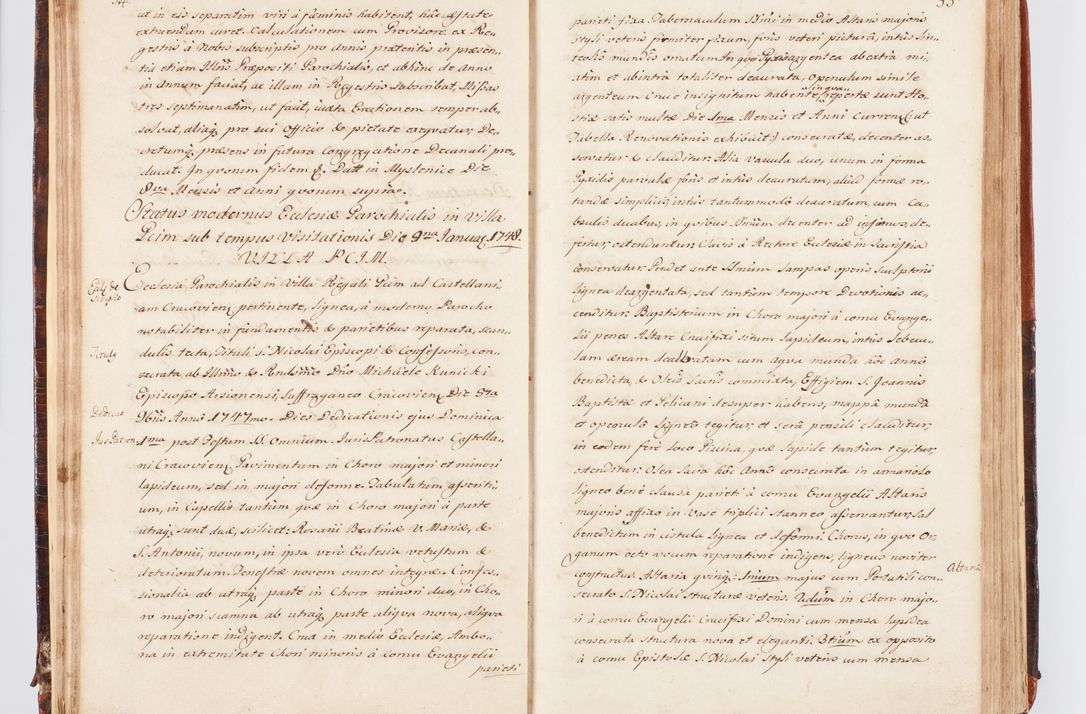 54
ut in eis separatim viri à fæminis habitent, hâc Æstate
extruendam curet. Calculationem cum Provisore ex Re-
gestris à Nobis subscriptis pro annis præteritis in præsen-
tiâ etiam Illmi Præpositi Parochialis, et abhinc de Anno
in Annum faciat, ac illam in Regestris subscribat, Missas
tres septimanatim, ut facit, iuxta Erectionem semper ab-
solvat, aliaq; pro sui Officio & pietate exequatur, De-
cretumq; præsens in futura Congregatione Decanali pro-
ducat. In quorum fidem &. Datt in Myslenice Die
8va Mensis et Anni quorum suprae.
Status modernus Ecclesiæ Parochialis in Villa
Pcim sub tempus Visitationis Die 9na Januar 1748.
VILLA PCIM.
Ecclesia Parochialis in Villa Regali Pcim ad Castellani-
am Cracovien pertinente, lignea, à moderno Parocho
notabiliter in fundamentis & parietibus reparata, scan-
dulis tecta, Tituli S. Nicolai Episcopi & Confessoris, con-
secrata ab Illmo & Rndssmo Dno Michaele Kunicki
Episcopo Arsionensi, Suffraganeo Cracovien Die 5ta
9bris Anno 1747mo. Dies Dedicationis ejus Dominica
1ma post Festum SS. Omnium. Juris Patronatus Castella-
ni Cracovien. Pavimentum in Choro majori et minori
lapideum, sed in majori deforme. Tabulatum asseriti-
um, in Capellis tantum quæ in Choro majori à parte
utraq; sunt duæ, scilicet: Rosarii Beatinæ V. Mariæ, &
S. Antonii, novum, in ipsa verò Ecclesia vetustum &
deterioratum. Fenestræ novem omnes integræ. Confes-
sionalia ab utraq; parte in Choro minori duo, in Cho-
ro majori scamna ab utraq; parte aliqua nova, aliqua
reparatione indigent. Crux in medio Ecclesiæ, Ambo-
na in extremitate Chori minoris à cornu Evangelii
parieti
Titulq
Dedicac
Jus Patron
55
parieti fixa. Tabernaculum Bini in medio Altaris majoris
styli veteris firmiter fixum, foris veteri picturâ, intùs lin-
teolis mundis ornatum. In quo Pyxis argentea ab extra mi-
atim et ab intra totaliter deaurata, operculum simile
argenteum Cruce insignitum habente, repertæ sunt Ho-
stiæ satis multæ Die 1ma Mensis et Anni Curren (ut
Tabella Renovationis exhibuit) consecratæ, decenter as-
servatur & clauditur. Alia Vascula duo, unum in forma
Pyxidis parvulæ foris et intùs deauratum, aliud formæ ro-
tundæ simplicis, intùs tantummodò deauratum cum Ca-
psulis duabus, in quibus decenter ad infirmos de-
fertur, ostenduntur. Clavis à Rectore Ecclesiæ in Sacristia
conservatur. Pendet ante lampas operis sculptorii
lignea deargentata, sed tantùm tempore Devotionis ac-
cenditur. Baptisterium in Choro majori à cornu Evange-
lii penes Altare Crucifixi situm lapideum, intùs lebecu-
lam æream dealbatam cum aqua munda hôc anno
benedicta, & Oleis Sacris commixta, Effigiem S. Joannis
Baptistæ et Pelicani desuper habens, mappâ mundâ
et operculo ligneo tegitur, et serâ pensili clauditur;
in eodem ferè loco Piscina, quæ lapide tantum tegitur,
ostenditur. Olea Sacra hôc Anno consecrata in armariolo
ligneo bene clauso parieti à cornu Evangelii Altaris
majoris affixo in Vase triplici stanneo asservantur. Sal
benedictum in cistula lignea et deformi. Chorus, in quo Or-
ganum octo vocum reparatione indigens, ligneus noviter
constructus. Altaria quinq;: 1mum majus cum Portatili con-
secrato S. Nicolai structuræ veteris. 2dum in Choro majo-
ri à cornu Evangelii Crucifixi Domini cum mensa lapidea
consecrata structura nova et eleganti. 3tium ex opposito
à cornu Epistolæ S. Nicolai styli veteris cum mensa
Altaria